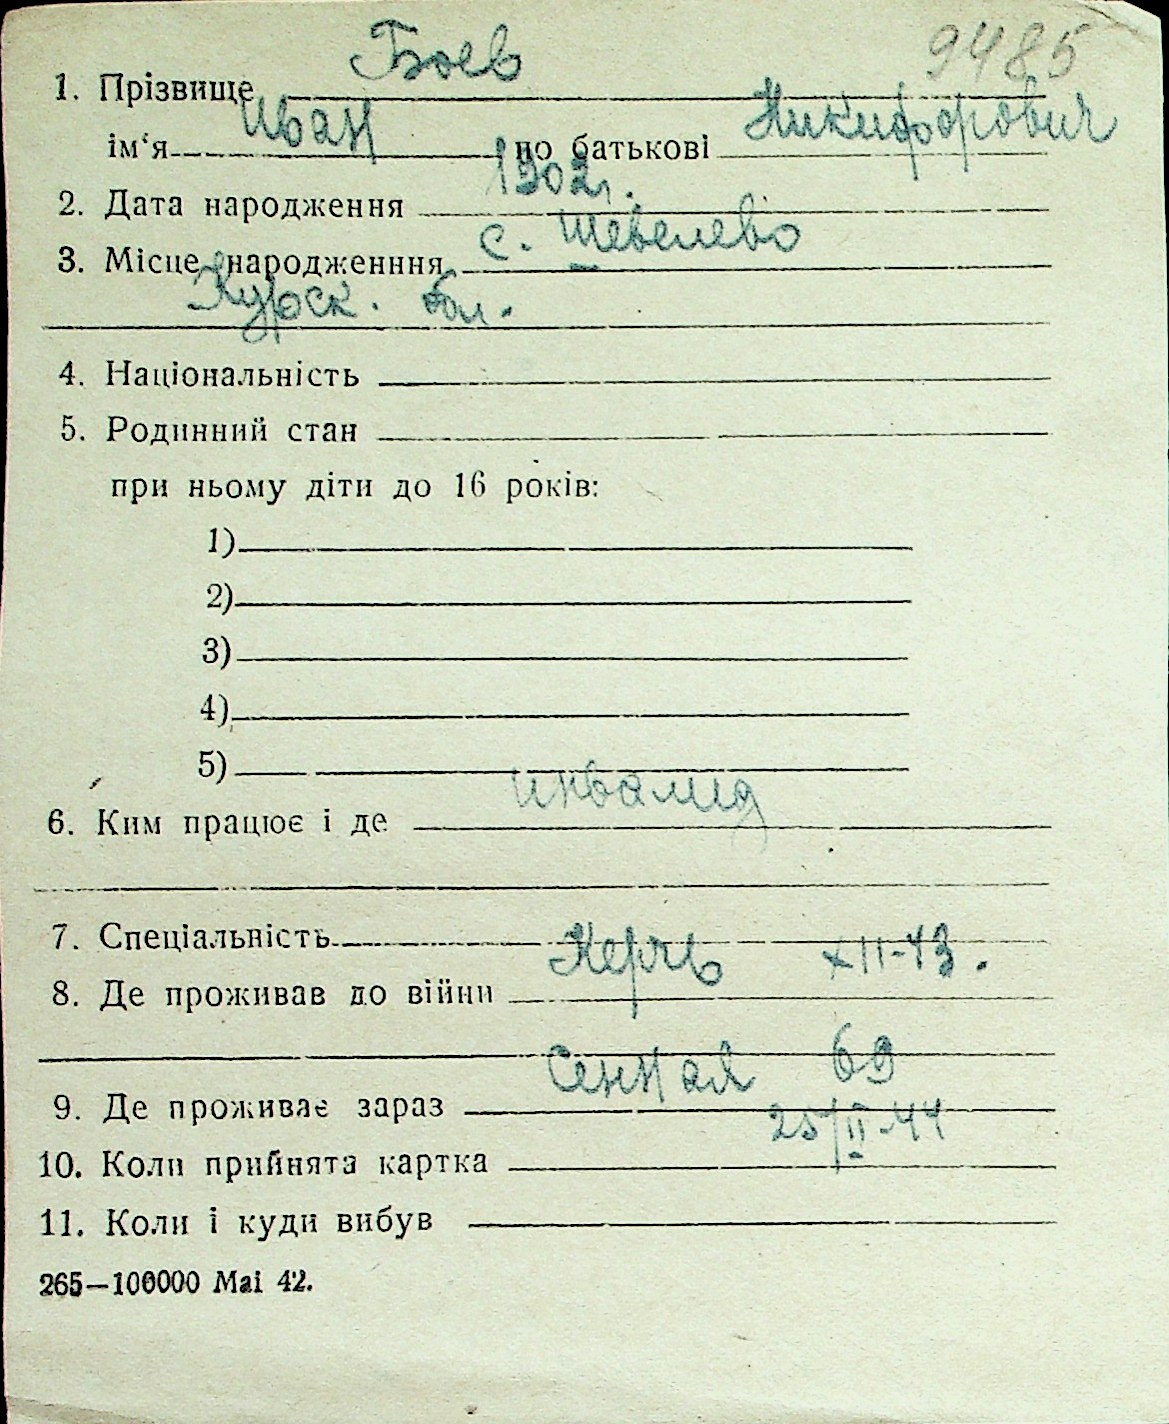 9485
1. Прізвище Боев
ім‘я Иван по батькові Никифорович
2. Дата народження 1902г.
3. Місце народженння с. Шевелево
Курск. обл.
4. Національність
5. Родинний стан
при ньому діти до 16 років:
1)
2)
3)
4)
5)
6. Ким працює і де инвалид
7. Спеціальність
8. Де проживав до війни Керчь XII-43.
9. Де проживає зараз Сенная 69
10. Коли прийнята картка 25/II-44
11. Коли і куди вибув
265—100000 Mai 42.